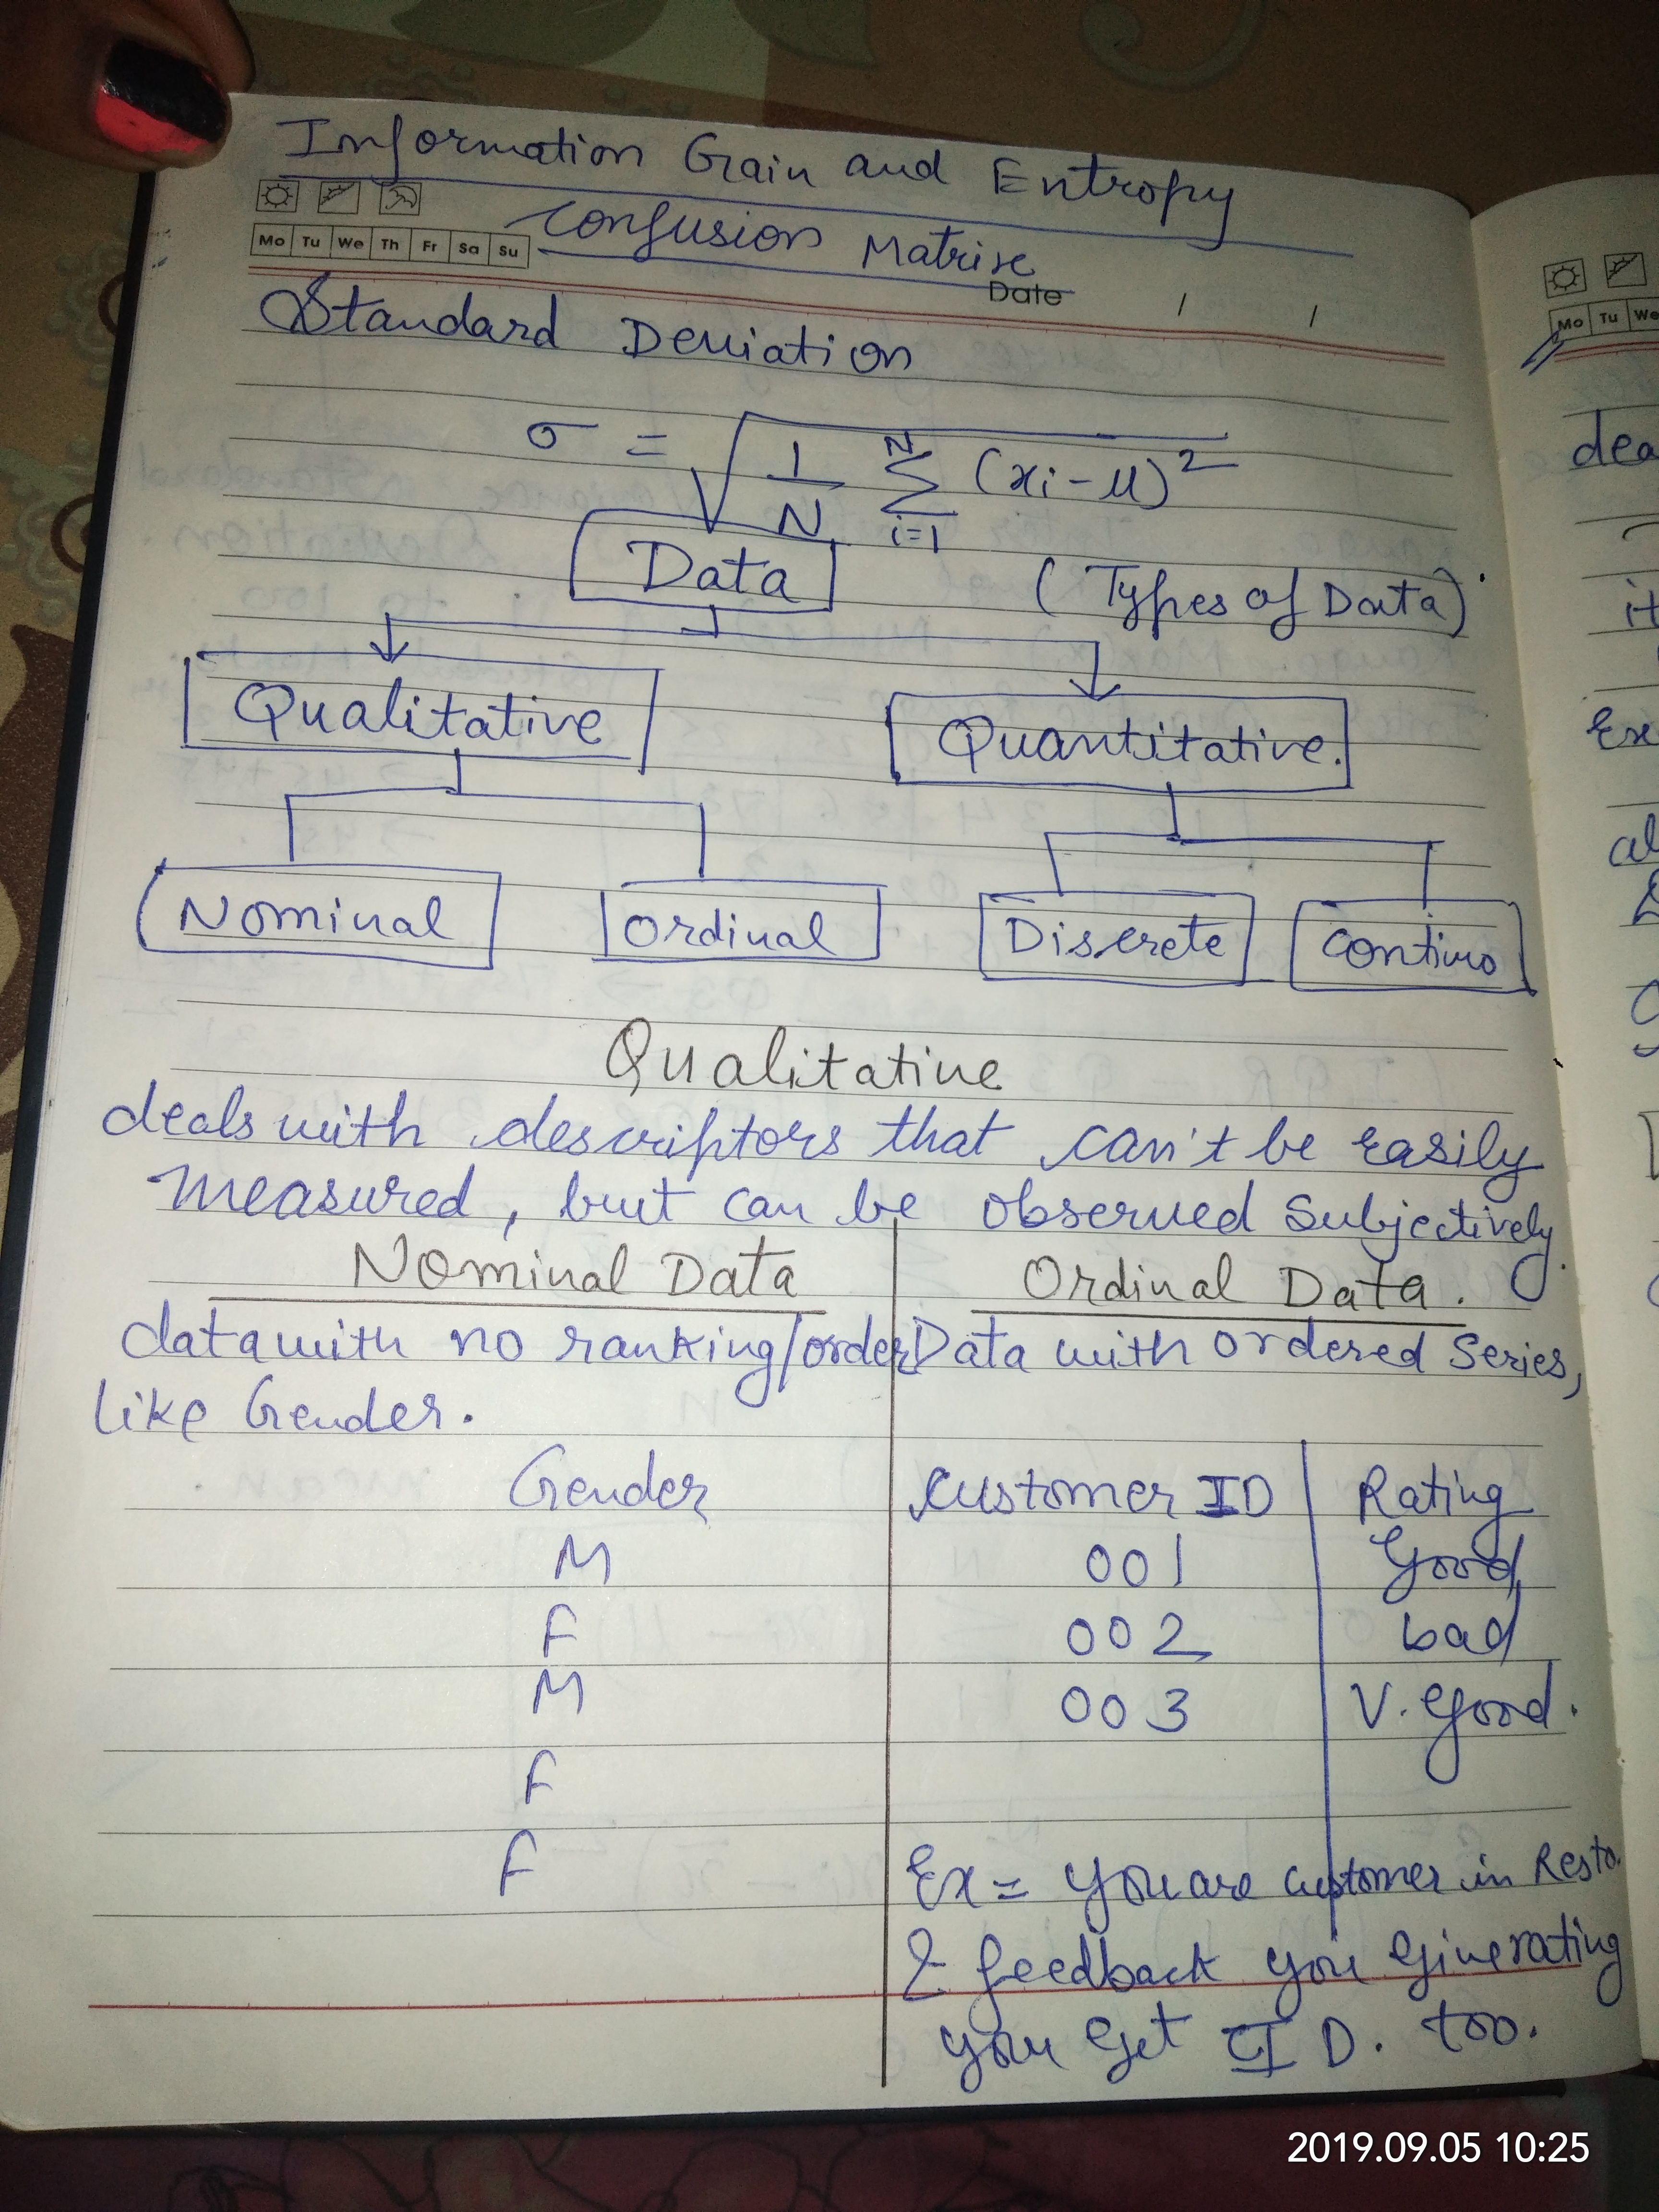 Information Gain and Entropy
Confusion Matrix
Mo Tu We Th Fr Sa Su
Date / /
Standard Deviation
σ = √ 1/N Σ N i=1 (xi - μ)²
Data
(Types of Data)
Qualitative
Quantitative.
Nominal
Ordinal
Discrete
Qualitative
deals with descriptors that can't be easily
measured, but can be observed Subjectively.
Nominal Data
data with no ranking/order
like Gender.
Gender
M
F
M
F
F
Ordinal Data.
Data with ordered Series,
Customer ID Rating
001 Good
002 bad
003 V. Good.
Ex = You are customer in Resto.
& feedback you give rating
you get ID. too.
Mo Tu We
dea
it
Ex
al
2019.09.05 10:25